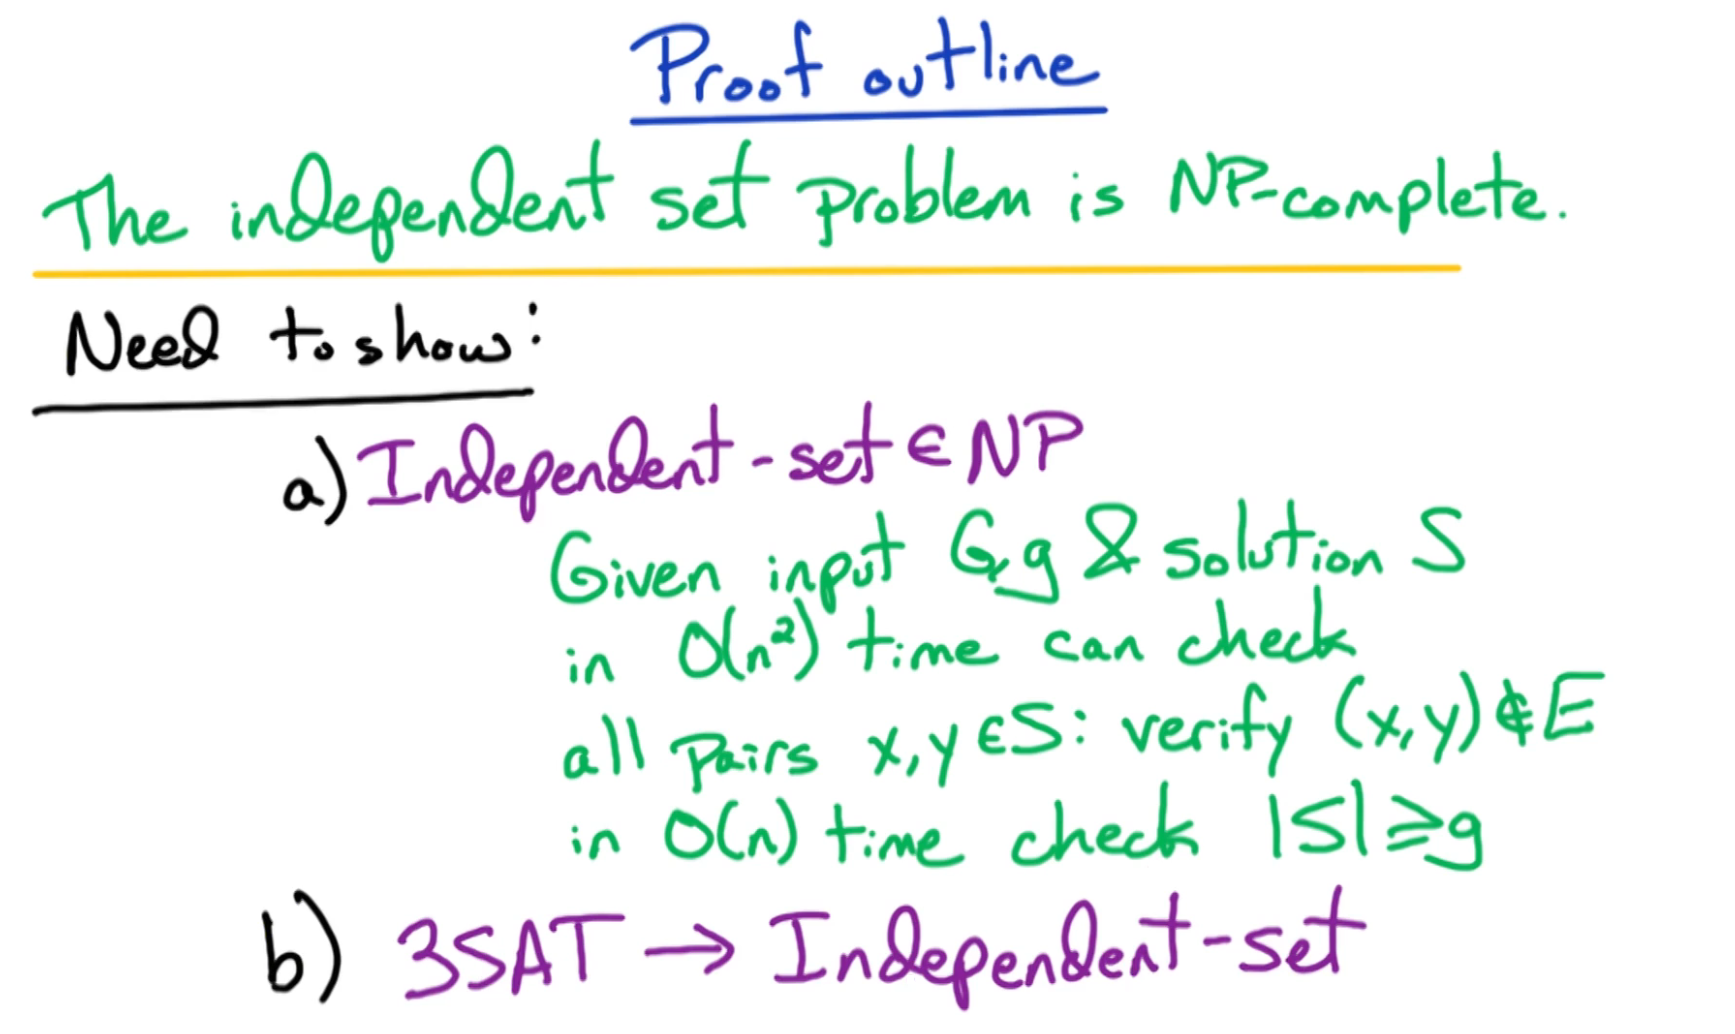 Proof outline
The independent set problem is NP-complete.
Need to show:
a) Independent-set ∈ NP
Given input G, g & solution S
in O(n²) time can check
all pairs x, y ∈ S: verify (x, y) ∉ E
in O(n) time check |S| ≥ g
b) 3SAT → Independent-set